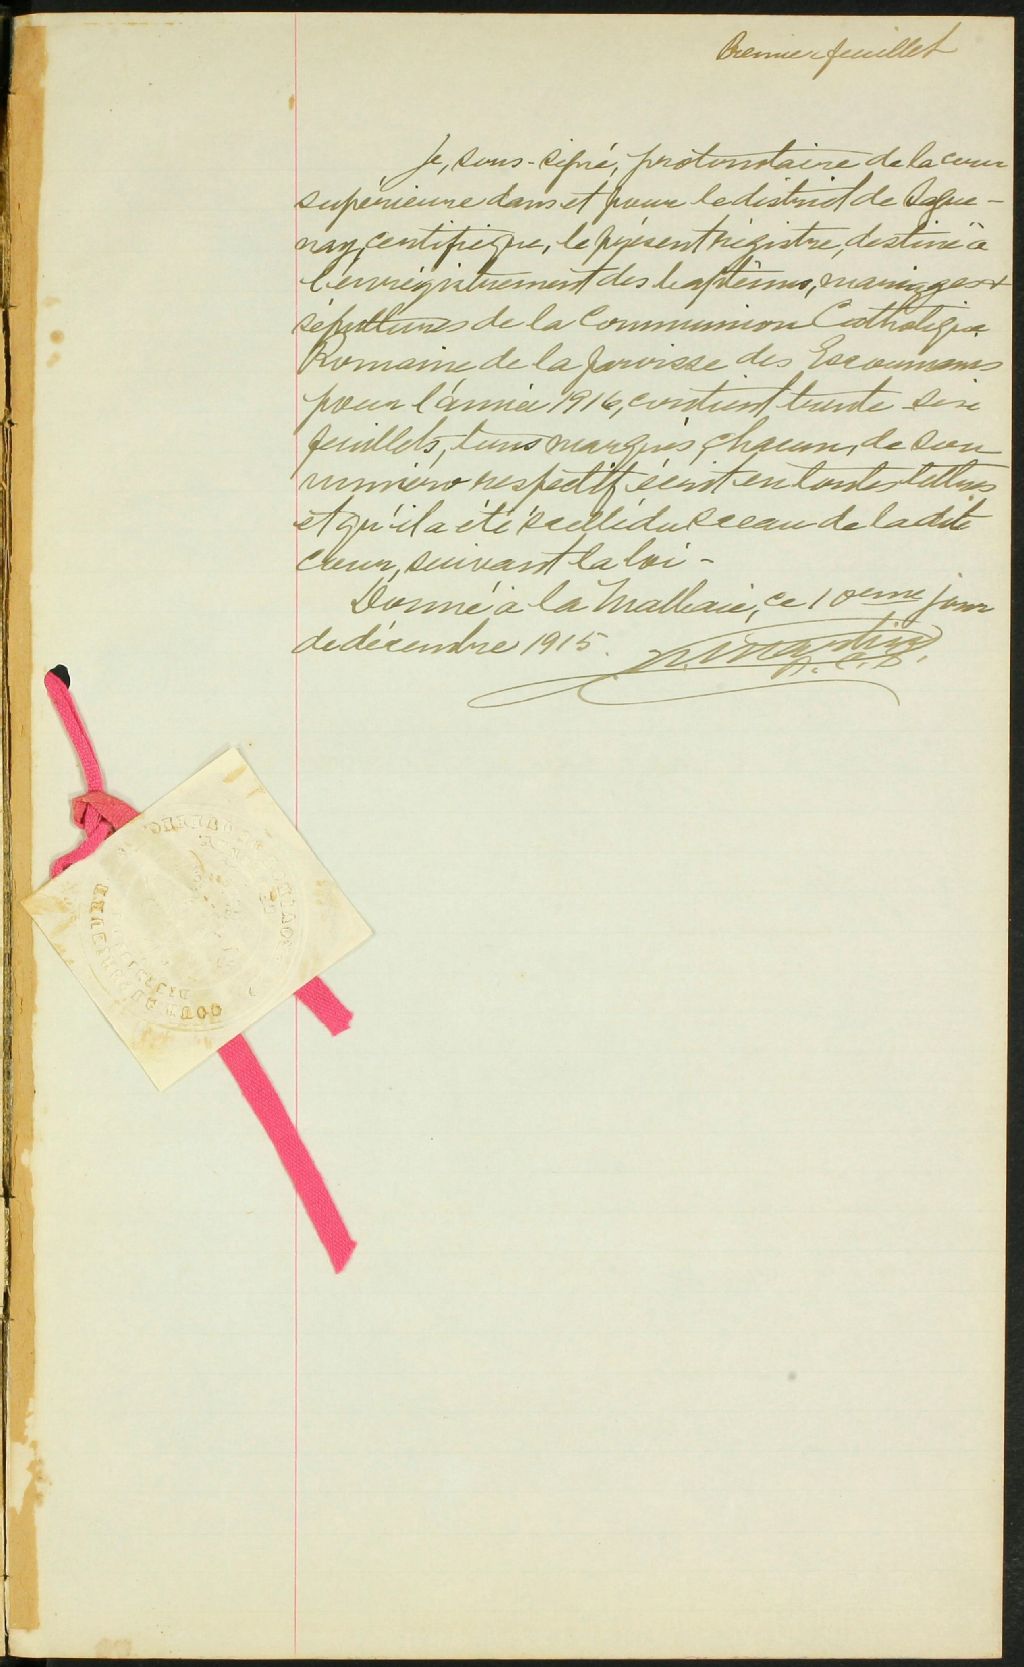 Premier feuillet
Je, sous-signé, protonotaire de la cour
supérieure dans et pour le district de Sague-
nay, certifie que, le présent régistre, destiné à
l'enrégistrement des baptêmes, mariages &
sépultures de la Communion Catholique
Romaine de la paroisse des Escoumains
pour l'année 1916, contient trente six
feuillets, tous marqués, chacun, de son
numéro respectif écrit en toutes lettres
et qu'il a été scellé du sceau de la dite
cour, suivant la loi -
Donné à la Malbaie, ce 10eme jour
de décembre 1915.
P. C. S.